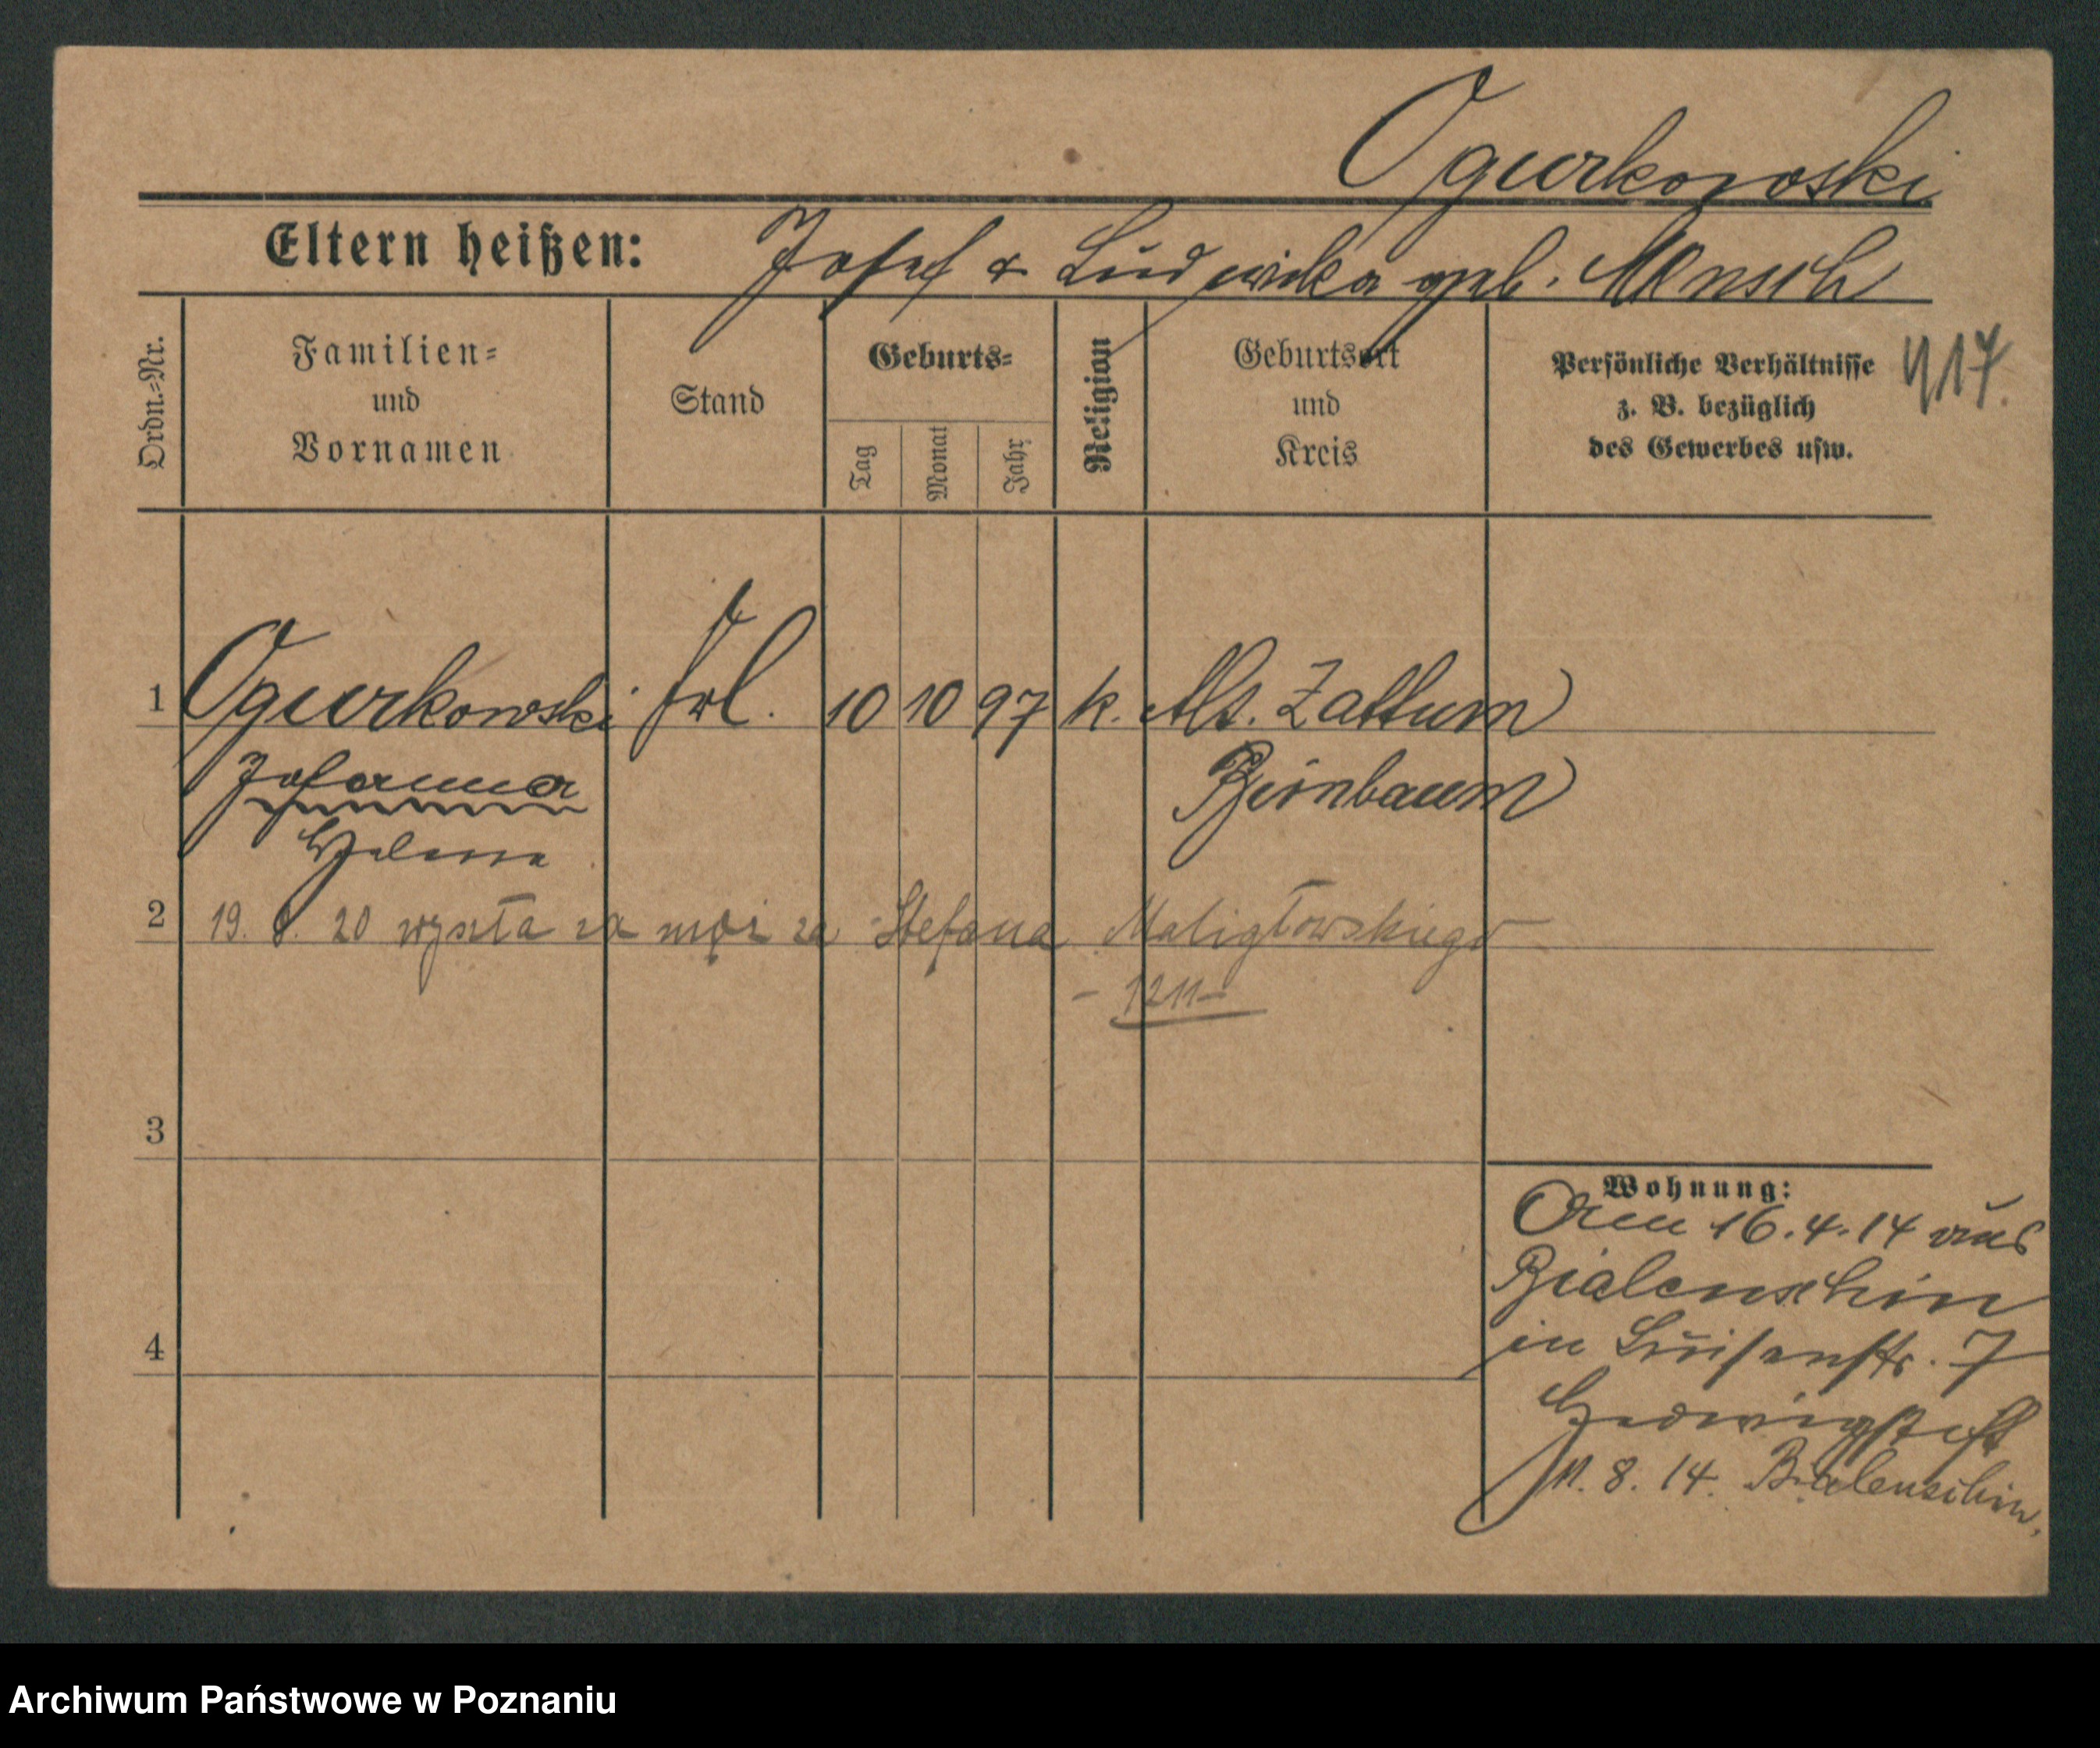 Ogurkowski
Eltern heißen: Josef & Ludwika geb. Mensch
Ordn.=Nr.
Familien=
und
Vornamen
Stand
Geburts=
Tag
Monat
Jahr
Religion
Geburtsort
und
Kreis
Persönliche Verhältnisse
z. B. bezüglich
des Gewerbes usw.
917.
1 Ogurkowski Frl. 10 10 97 k. Alt. Zattum
Johanna Birnbaum
Helena
2 19. 8. 20 wyszła za mąż za Stefana Maligłowskiego
- 1211 -
3
4
Wohnung:
16.4.14 aus
Bialenschin
in Luisenstr. 7
Hedwigstift
11. 8. 14. Bialenschin.
Archiwum Państwowe w Poznaniu